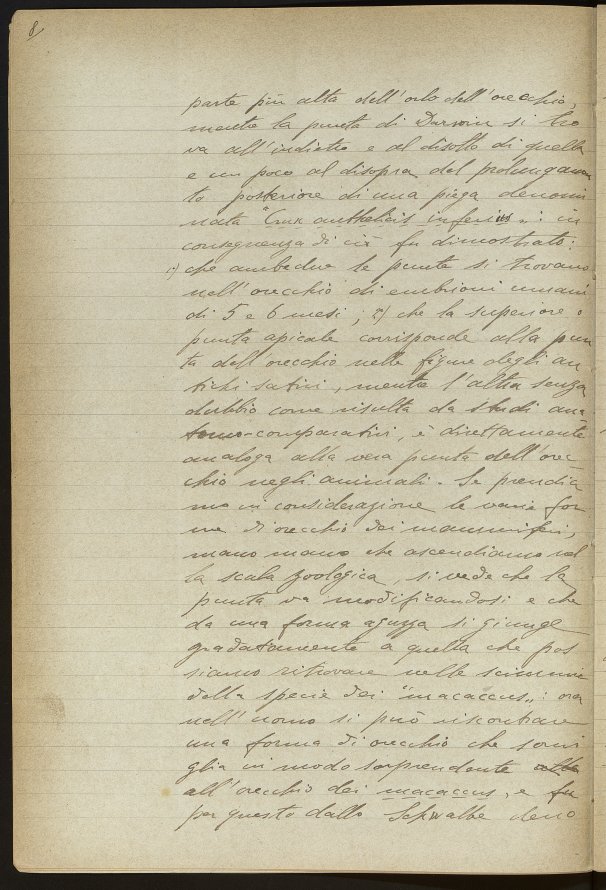 8/
parte più alta dell'orlo dell'orecchio,
mentre la punta di Darwin si tro
va all'indietro e al disotto di quella
e un poco al disopra del prolungamen
to posteriore di una piega denomi
nata "Crux anthelicis inferius„: in
conseguenza di ciò fu dimostrato:
1°) che ambedue le punte si trovano
nell'orecchio di embrioni umani
di 5 e 6 mesi; 2°) che la superiore o
punta apicale corrisponde alla pun
ta dell'orecchio nelle figure degli an
tichi satiri, mentre l'altra senza
dubbio come risulta da studi ana
tomo-comparativi, è direttamente
analoga alla vera punta dell'orec
chio negli animali. Se prendia
mo in considerazione le varie for
me di orecchio dei mammiferi,
mano mano che ascendiamo nel
la scala zoologica, si vede che la
punta va modificandosi e che
da una forma aguzza si giunge
gradatamente a quella che pos
siamo ritrovare nelle scimmie
della specie dei "macaccus„: ora
nell'uomo si può riscontrare
una forma di orecchio che somi
glia in modo sorprendente alla
all'orecchio dei macaccus, e fu
per questo dallo Schwalbe deno